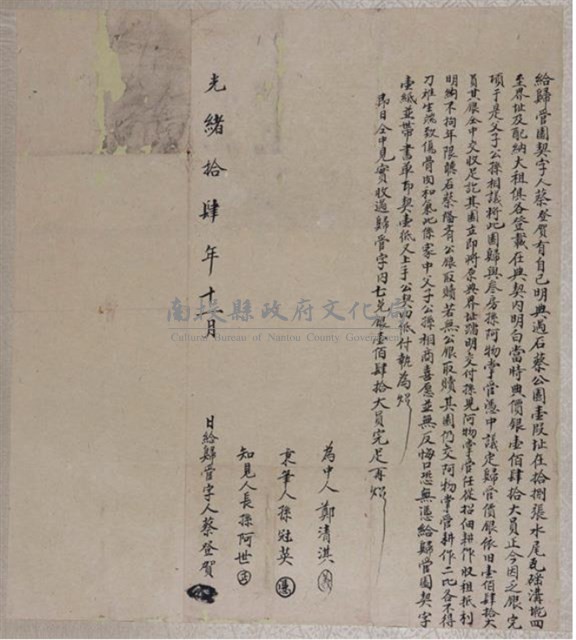 給歸管園契字人蔡登賀有自己明典過石蔡公園壹段址在拾捌張水尾瓦磘溝坣四
至界址及配納大租俱各登載在典契內明白當時典價銀壹佰肆拾大員正今因乏銀完
項于是父子公孫相議將此園歸與叁房孫阿物掌管憑中議定歸管價銀依旧壹佰肆拾大
員其銀仝中交收足訖其園立即將原典界址踏明交付孫兒阿物掌管任從招佃耕作收租抵利
明約不拘年限聽石蔡隆公銀取贖若無公銀取贖其園仍交阿物掌管耕作二比各不得
刁难生端致傷骨肉和氣此係家中父子公孫相商喜愿並無反悔口恐無憑給歸管園契字
壹紙並帶書單即契壹紙又上手公契四紙付執為炤
即日仝中見實收過歸管字內七兌銀壹佰肆拾大員完足再炤
為中人鄭清淇
秉筆人孫廷英
知見人長孫阿世
光緒拾肆年十一月 日給歸管字人蔡登賀
南投縣政府文化局
Cultural Bureau of Nantou County Government